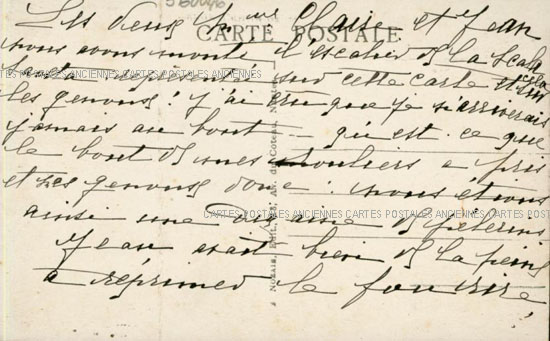 Les deux Mme Claire et Jean
CARTE POSTALE
nous avons monté l'escalier de la Scala
santa représenté sur cette carte et cela sur
les genoux : j'ai cru que je n'arriverais
jamais au bout — qu'est-ce que
le bout de mes souliers a pris
et les genoux donc : nous étions
ainsi une dizaine de pélerins
Jean avait bien de la peine
à réprimer le fou rire
CARTES POSTALES ANCIENNES CARTES POSTALES ANCIENNES CARTES POSTALES ANCIENNES
CARTES POSTALES ANCIENNES CARTES POSTALES ANCIENNES CARTES POSTALES
Nozais, Edit., 18, Av. du Coteau, Nantes